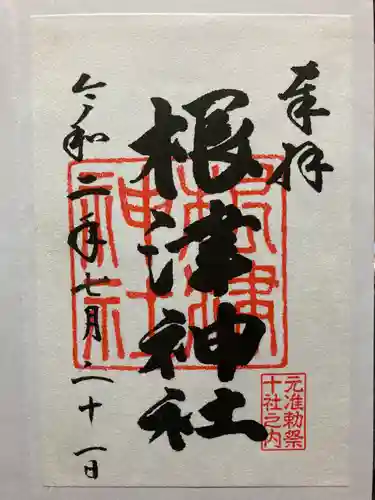 奉拝
根津神社
令和二年七月二十一日
根津
神社
元准勅祭
十社之内